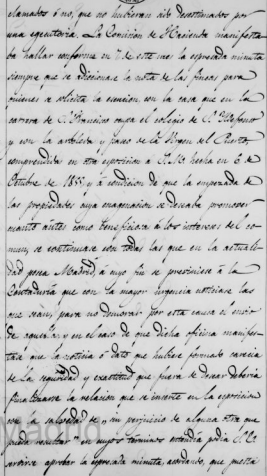 clamados ó no, que no hubieran sido desestimados por
una egecutoria. La Comision de Hacienda manifesta-
ba hallar conforme en 7 de este mes la espresada minuta
siempre que se adicionase la nota de las fincas para
quienes se solicita la escepcion con la casa que en la
carrera de S. Francisco ocupa el colegio de S. Ildefonso
y con la arboleda y paseo de la Virgen del Puerto,
comprendida en otra esposicion á S. M. hecha en 6 de
Octubre de 1855 y á condicion de que la empezada de
las propiedades cuya enagenacion se deseaba promover
cuanto antes como beneficiosa á los intereses del co-
mun, se continuase con todas las que en la actuali-
dad posea Madrid, á cuyo fin se previniese á la
Contaduria que con la mayor urgencia noticiase las
que sean, para no demorar por esta causa el envio
de aquella: y en el caso de que dicha oficina manifes-
tara que la noticia ó dato que hubiese formado carecia
de la seguridad y exactitud que fuera de desear deberia
finalizarse la relacion que se inserte en la esposicion
con la salvedad de "sin perjuicio de alguna otra que
pueda resultar" en cuyos terminos entendia podia V. E.
servirse aprobar la espresada minuta, acordando, que puesta